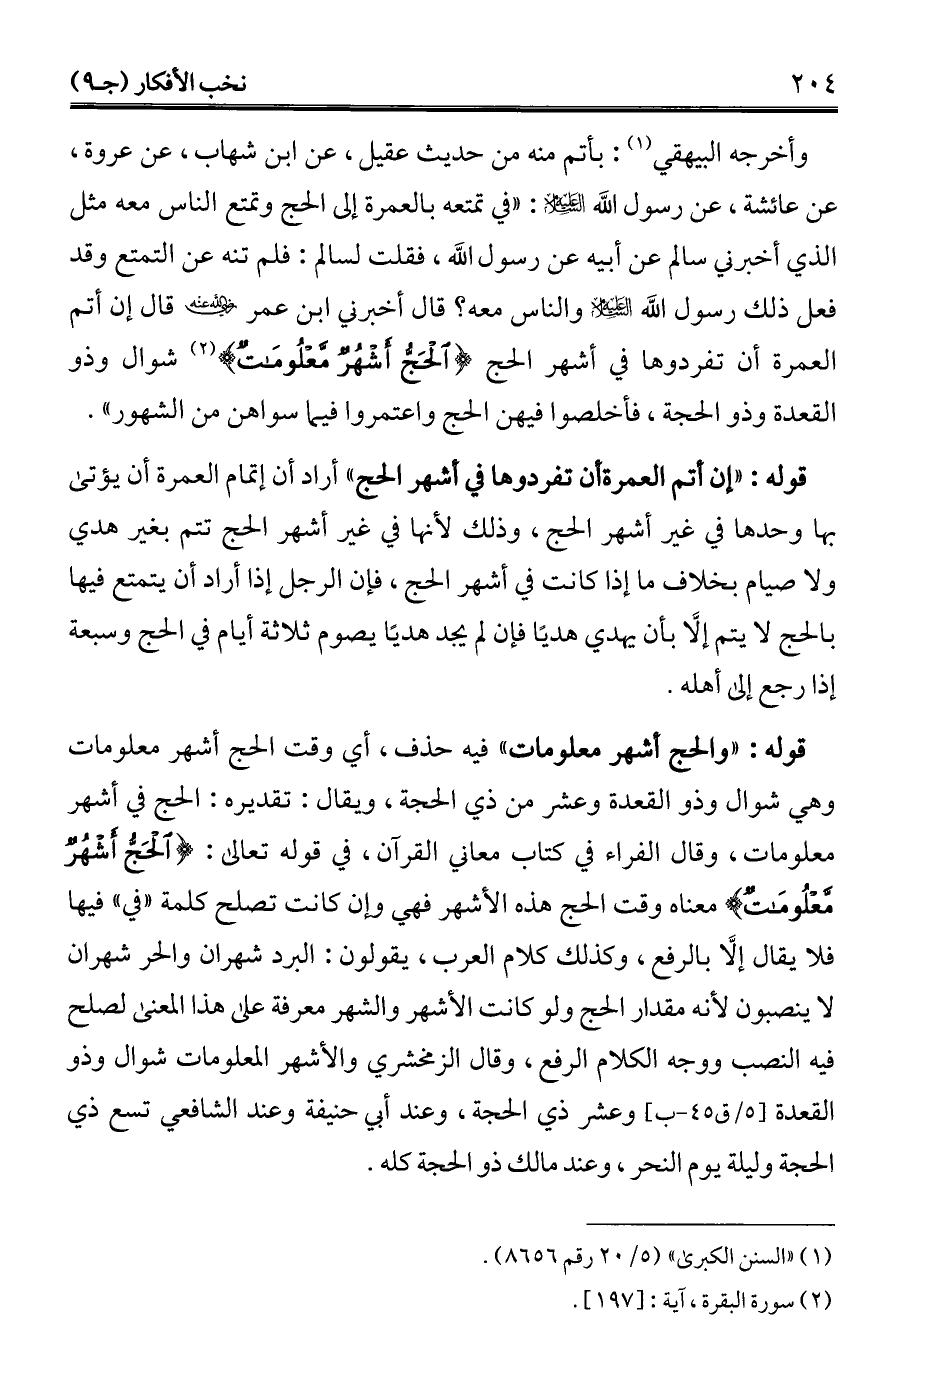 ٢٠٤ نخب الأفكار (جـ٩)
وأخرجه البيهقي(١) : بأتم منه من حديث عقيل ، عن ابن شهاب ، عن عروة ،
عن عائشة ، عن رسول الله ﷺ : «في تمتعه بالعمرة إلى الحج وتمتع الناس معه مثل
الذي أخبرني سالم عن أبيه عن رسول الله ، فقلت لسالم : فلم تنه عن التمتع وقد
فعل ذلك رسول الله ﷺ والناس معه؟ قال أخبرني ابن عمر رضي الله عنه قال إن أتم
العمرة أن تفردوها في أشهر الحج ﴿ٱلْحَجُّ أَشْهُرٌ مَّعْلُومَٰتٌ﴾(٢) شوال وذو
القعدة وذو الحجة ، فأخلصوا فيهن الحج واعتمروا فيما سواهن من الشهور» .
قوله : «إن أتم العمرة أن تفردوها في أشهر الحج» أراد أن إتمام العمرة أن يؤتى
بها وحدها في غير أشهر الحج ، وذلك لأنها في غير أشهر الحج تتم بغير هدي
ولا صيام بخلاف ما إذا كانت في أشهر الحج ، فإن الرجل إذا أراد أن يتمتع فيها
بالحج لا يتم إلَّا بأن يهدي هديًا فإن لم يجد هديًا يصوم ثلاثة أيام في الحج وسبعة
إذا رجع إلى أهله .
قوله : «والحج أشهر معلومات» فيه حذف ، أي وقت الحج أشهر معلومات
وهي شوال وذو القعدة وعشر من ذي الحجة ، ويقال : تقديره : الحج في أشهر
معلومات ، وقال الفراء في كتاب معاني القرآن ، في قوله تعالى : ﴿ٱلْحَجُّ أَشْهُرٌ
مَّعْلُومَٰتٌ﴾ معناه وقت الحج هذه الأشهر فهي وإن كانت تصلح كلمة «في» فيها
فلا يقال إلَّا بالرفع ، وكذلك كلام العرب ، يقولون : البرد شهران والحر شهران
لا ينصبون لأنه مقدار الحج ولو كانت الأشهر والشهر معرفة على هذا المعنى لصلح
فيه النصب ووجه الكلام الرفع ، وقال الزمخشري والأشهر المعلومات شوال وذو
القعدة [٥/ق٤٥-ب] وعشر ذي الحجة ، وعند أبي حنيفة وعند الشافعي تسع ذي
الحجة وليلة يوم النحر ، وعند مالك ذو الحجة كله .
(١) «السنن الكبرى» (٥/ ٢٠ رقم ٨٦٥٦) .
(٢) سورة البقرة ، آية : [١٩٧] .